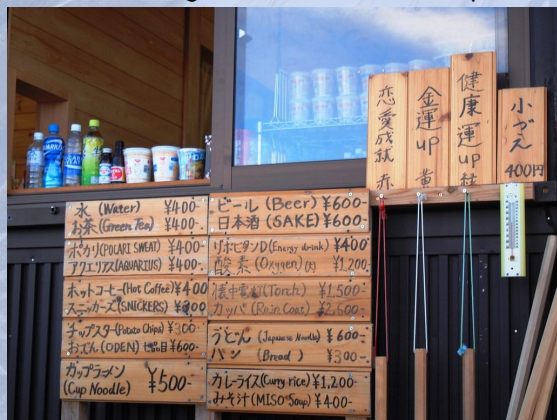 水 (Water) ¥400-
お茶 (Green Tea) ¥400-
ポカリ(POCARI SWEAT) ¥400-
アクエリアス(AQUARIUS) ¥400-
ホットコーヒー(Hot Coffee) ¥400
スニッカーズ(SNICKERS) ¥300
チップスター(Potato Chips) ¥300-
おでん(ODEN) ¥600-
カップラーメン
(Cup Noodle) ¥500-
ビール (Beer) ¥600-
日本酒 (SAKE) ¥600-
リポビタンD(Energy drink) ¥400
酸素 (Oxygen) ¥1,200-
懐中電灯(Torch) ¥1,500-
カッパ (Rain Coat) ¥2,500-
うどん (Japanese Noodle) ¥600-
パン (Bread) ¥300-
カレーライス(Curry rice) ¥1,200-
みそ汁(MISO Soup) ¥400-
恋愛成就 赤
金運up 黄
健康運up
小づえ
400円